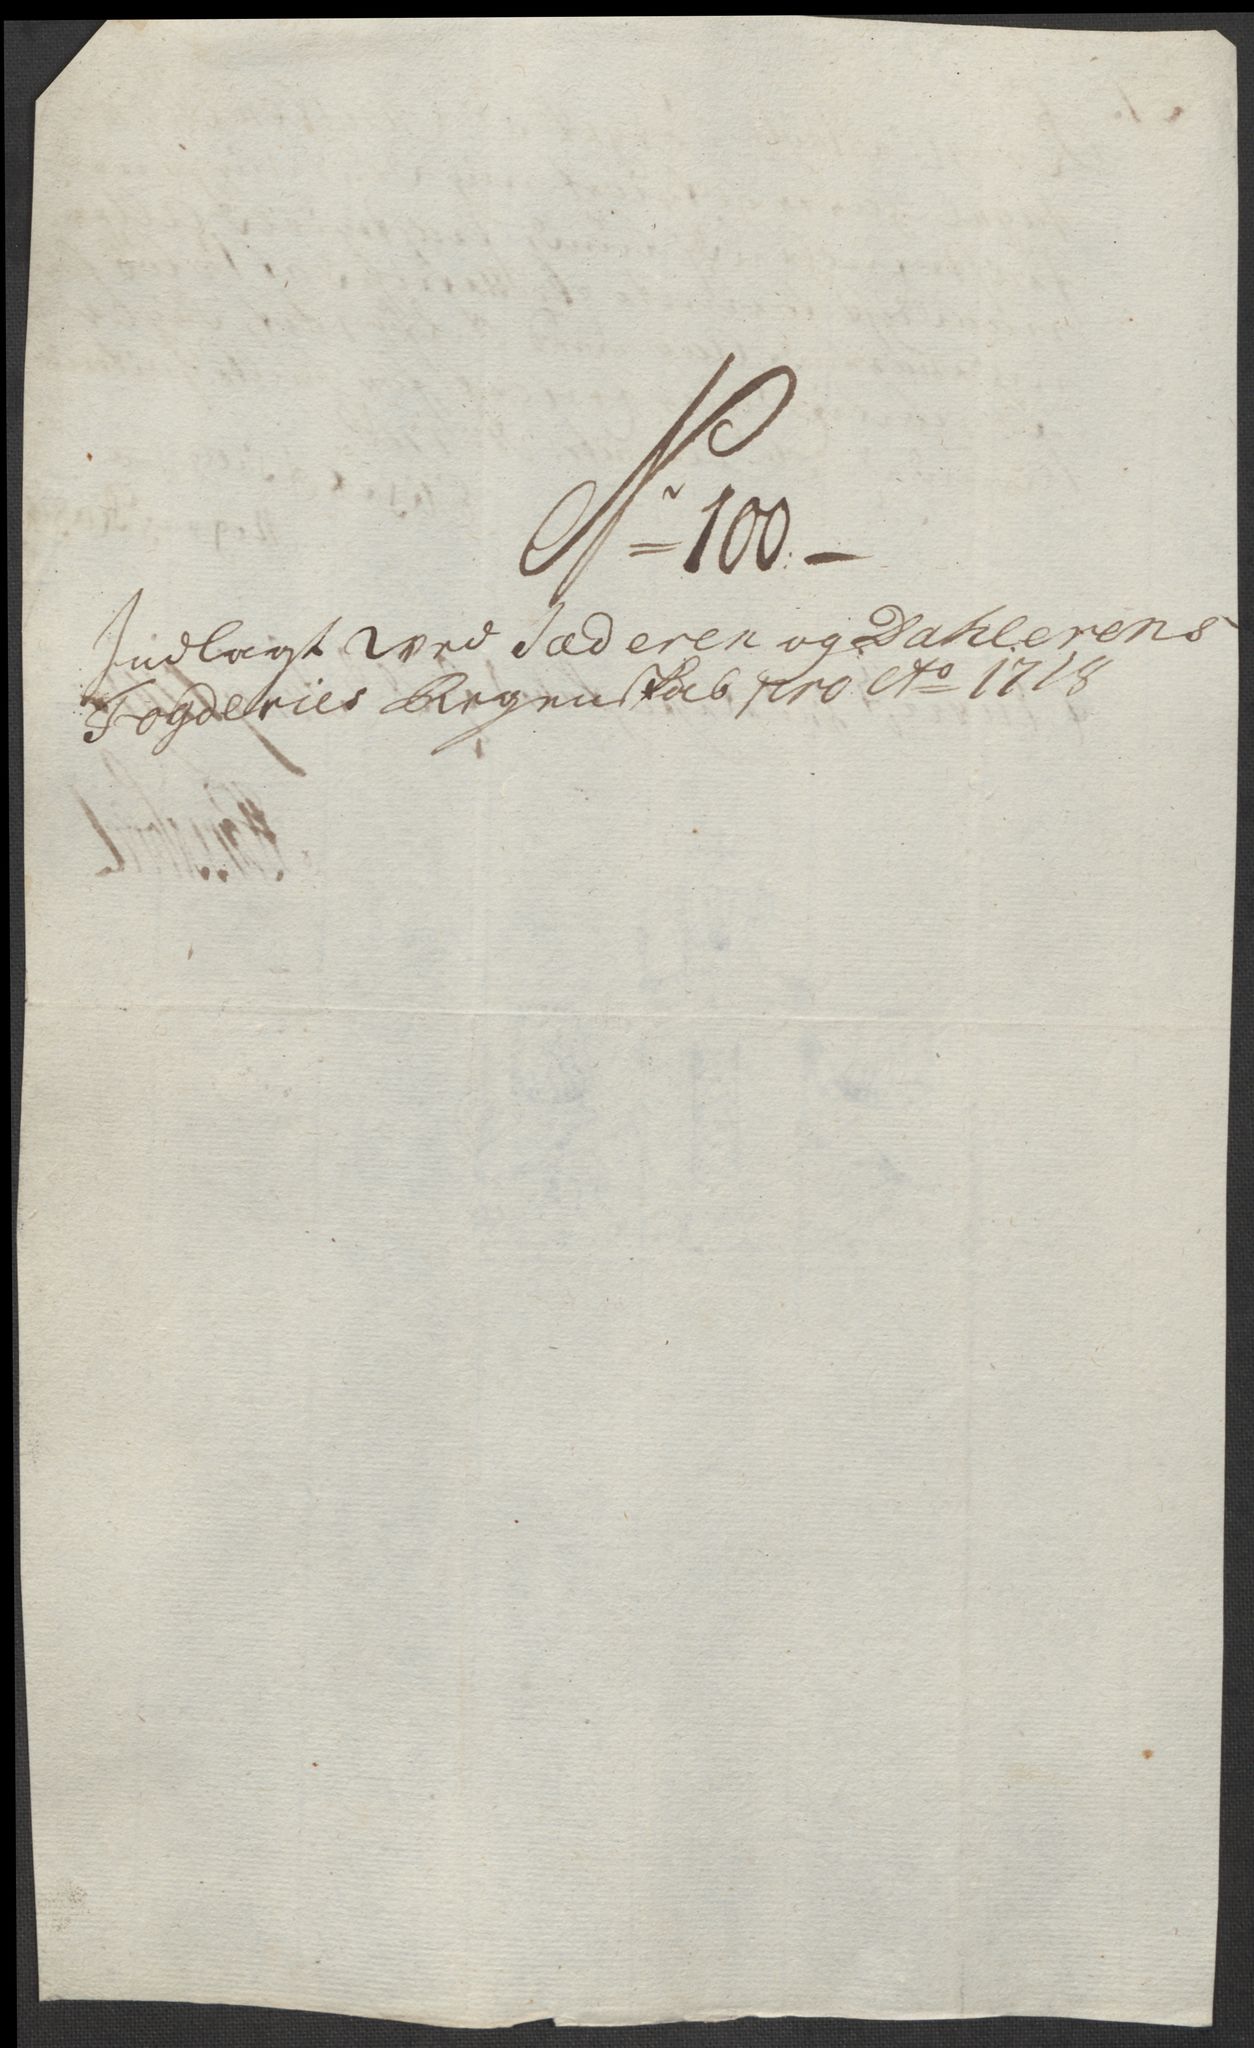 No = 100. —
Indlagt wed Jæderen og Dahlerens
Fogderies Regenskab pro Ao 1718